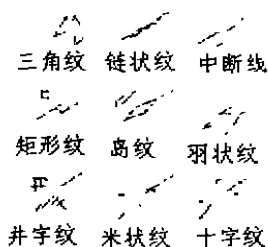 三角纹 链状纹 中断线
矩形纹 岛纹 羽状纹
井字纹 米状纹 十字纹